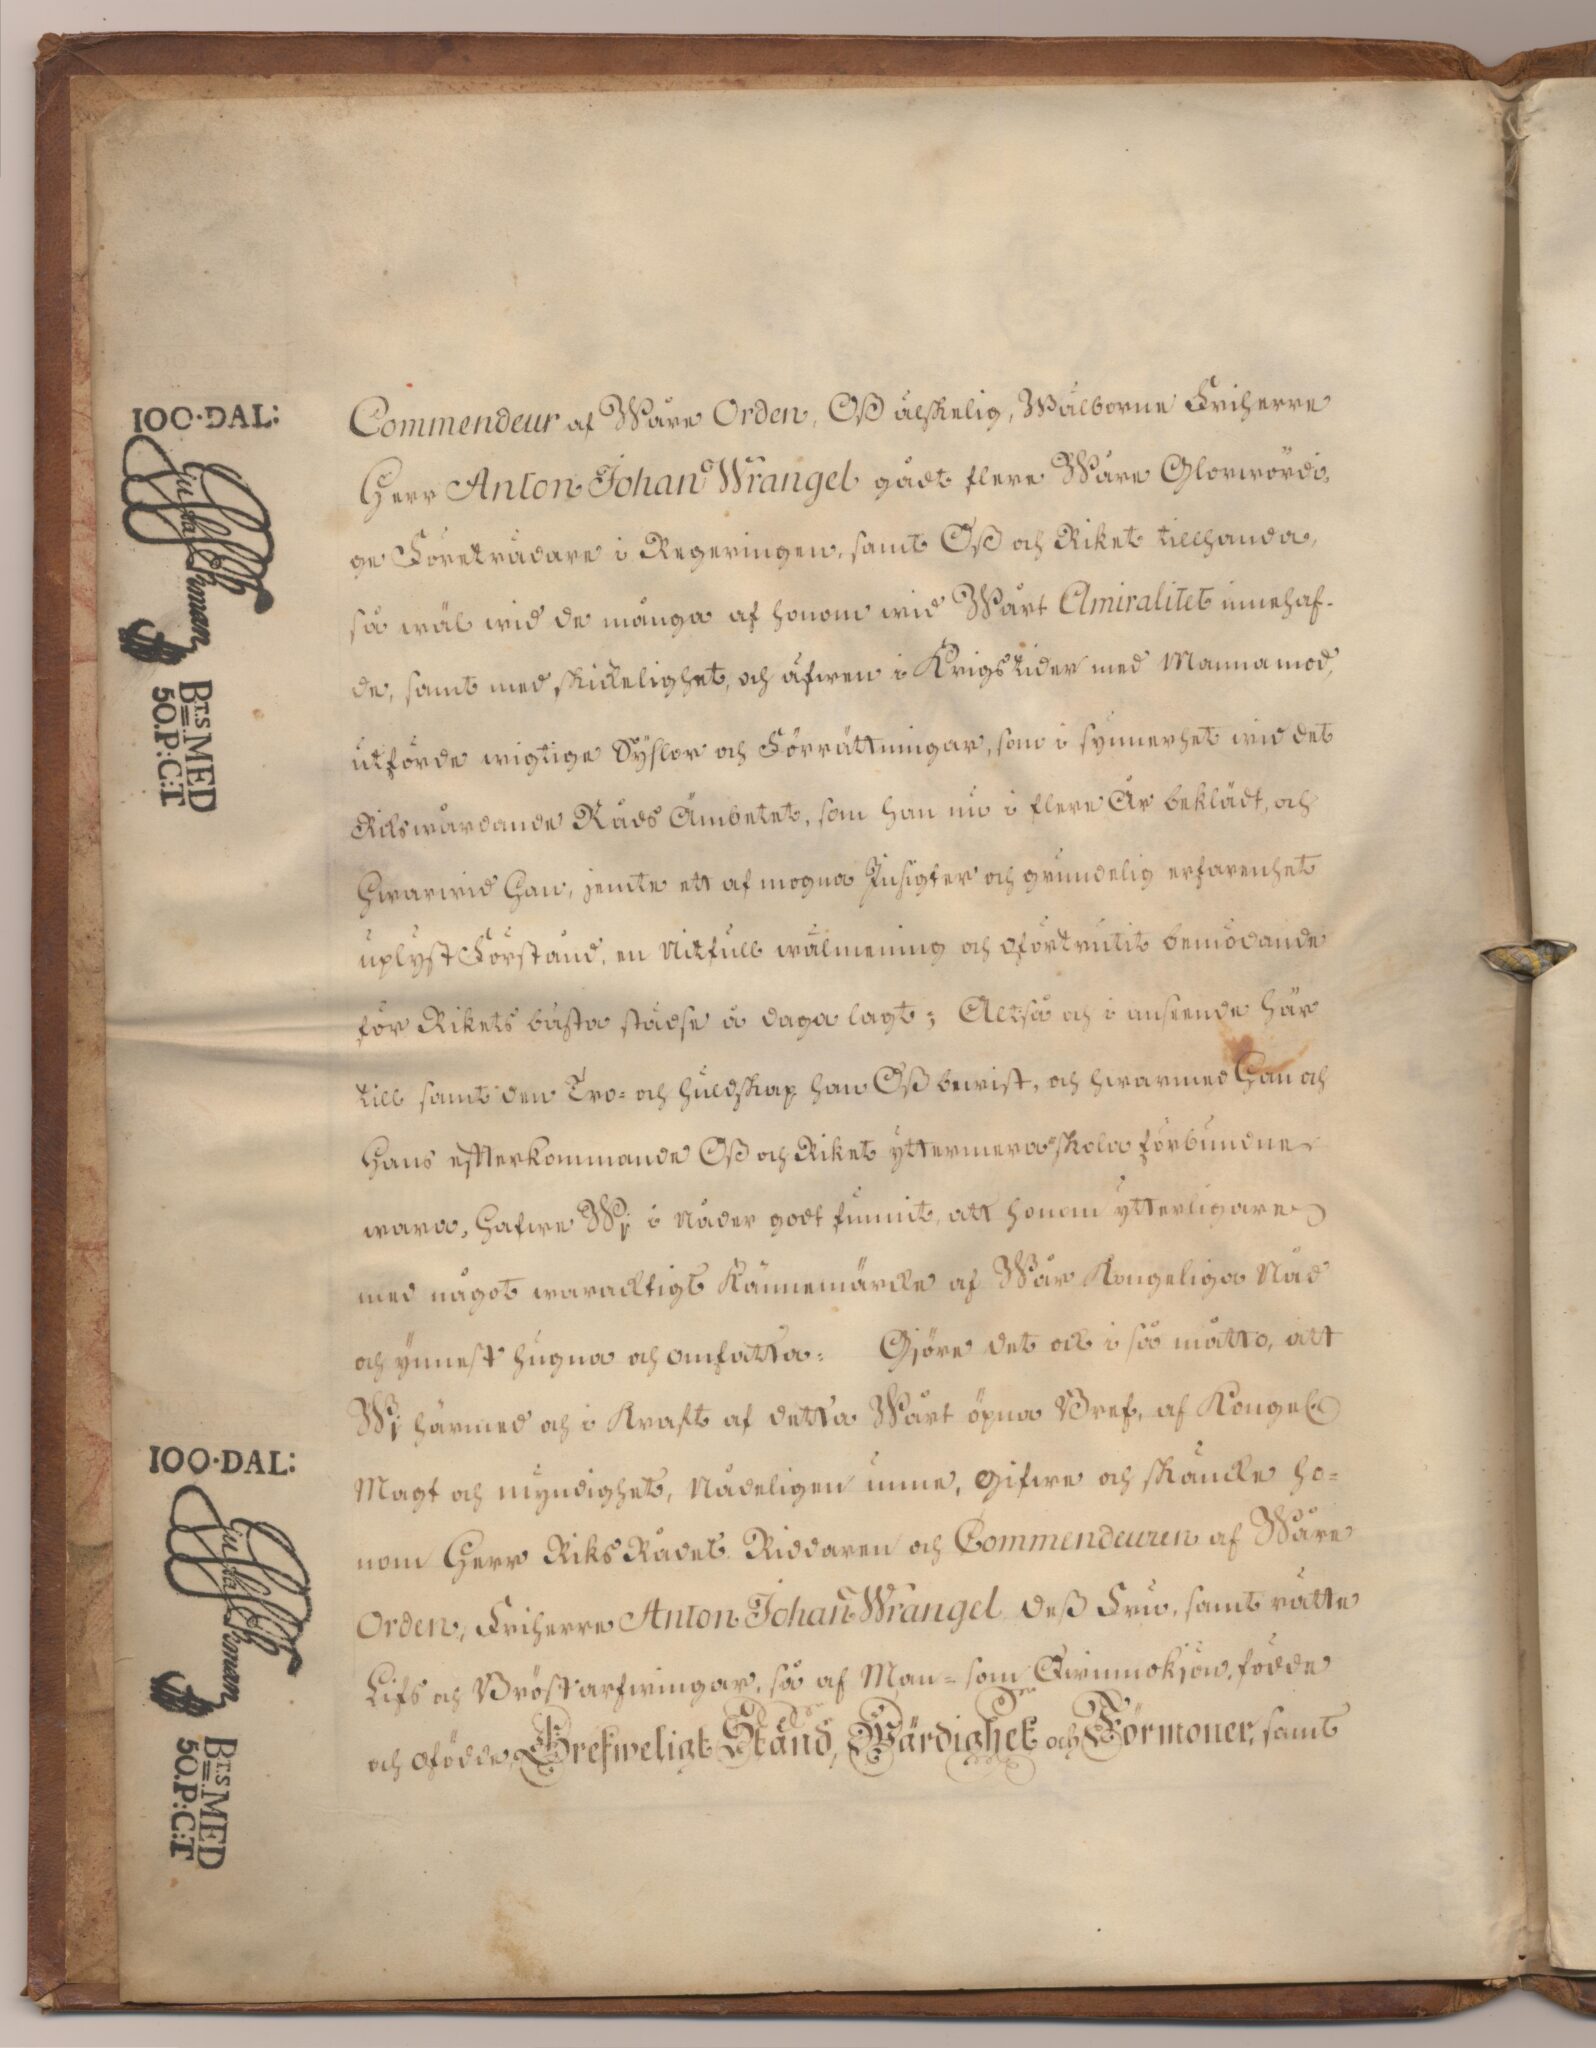 100·DAL:
Commendeur af Wåre Orden, Oß älskelig, Wälborne Friherre
Herr Anton Johan Wrangel gådt flere Wåre Glorwördi-
ge Företrädare i Regeringen, samt Oß och Riket tillhanda,
så wäl wid de många af honom wid Wårt Amiralitet innehaf-
de, samt med skickelighet, och äfwen i Krigstider med Mannamod,
utförde wigtige Sÿslor och Förrättningar, som i synnerhet wid det
Rikswårdande Råds Ämbetet, som han nu i flere År beklädt, och
Hwarwid Han, jemte ett af mogna Insigter och grundelig erfarenhet
uplyst Förstånd, en Nitfull wälmening och oförtrutit bemödande
för Rikets bästa städse å daga lagt; Altså och i anseende här
till samt den Tro- och huldskap han Oß bewist, och hwarmed Han och
Hans efterkommande Oß och Riket yttermera skola förbundne
wara, Hafwe Wj i Nåder godt funnit, att honom ytterligare
med något waracktigt Kännemärcke af Wår Kongeliga Nåd
och ÿnnest hugna och omfatta: Gjöre det ock i så matto, att
Wj härmed och i Kraft af detta Wårt öpna Bref, af Kongel.
Magt och myndighet, Nådeligen unne, gifwe och skäncke ho-
nom Herr Riks Rådet, Riddaren och Commendeuren af Wåre
Orden, Friherre Anton Johan Wrangel deß Fru, samt rätte
Lifs och Bröstarfwingar, så af Man- som Qwinnokjön, födde
och ofödde, Grefweligt Stånd, Wärdighet och Förmoner, samt
Br.s. MED
50.P:C:T
100·DAL:
Br.s. MED
50.P:C:T